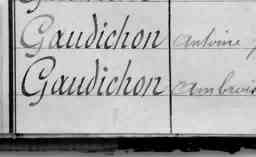 Gaudichon Antoine
Gaudichon Ambrois